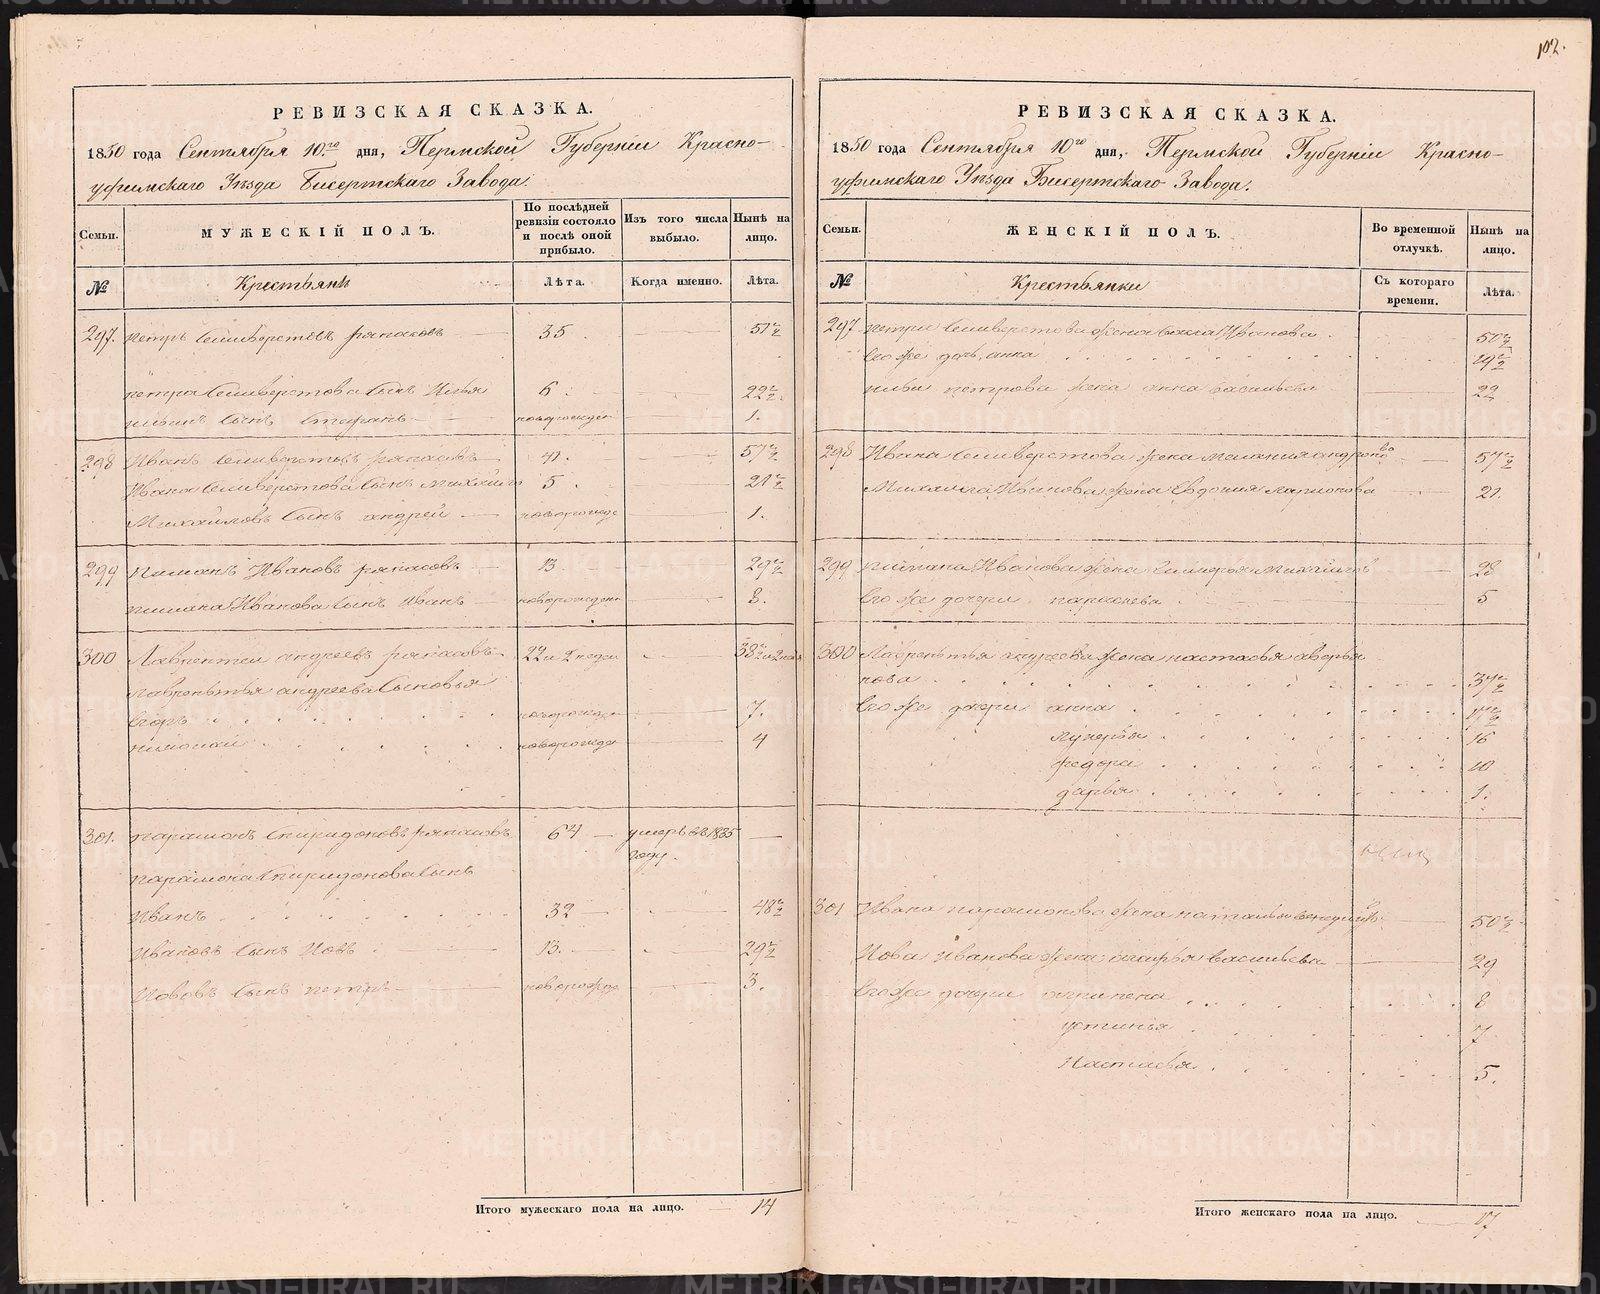 РЕВИЗСКАЯ СКАЗКА.
1850 года Сентября 10го дня, Пермской Губерніи Красно-
уфимскаго Уѣзда Бисертскаго Завода.
Семьи.
МУЖЕСКІЙ ПОЛЪ.
По послѣдней ревизіи состояло и послѣ оной прибыло.
Изъ того числа выбыло.
Нынѣ на лицо.
№
Крестьянѣ
Лѣта.
Когда именно.
Лѣта.
297. петръ Селиверстовъ 35 51 ½
петра Селиверстова Сынъ Илья 6. 22 ½
ильинъ Сынъ Степанъ новорожден 1.
298 Иванъ Селиверстовъ 41. 57 ½
Ивана Селиверстова Сынъ Михайло 5. 21 ½
Михайловъ Сынъ андрей новорожде 1.
299 пиманъ Ивановъ 13 29 ½
пимана Иванова Сынъ Иванъ новорожден 3.
300 Лаврентей андреевъ 22 и 2 недел 38 ½ и 2 недел
лаврентья андреева Сыновья
Егоръ новорожден 7.
николай новорожде 4
301. парамонъ Спиридоновъ 64 умеръ въ 1835
году.
парамона Спиридонова Сынъ
Иванъ 32 48 ½
Ивановъ Сынъ Иовъ 13. 29 ½
Иововъ Сынъ петръ новорожде 3.
Итого мужескаго пола на лицо. 14
102.
РЕВИЗСКАЯ СКАЗКА.
1850 года Сентября 10го дня, Пермской Губерніи Красно-
уфимскаго Уѣзда Бисертскаго Завода.
Семьи.
ЖЕНСКІЙ ПОЛЪ.
Во временной отлучкѣ.
Нынѣ на лицо.
№
Крестьянки
Съ котораго времени.
Лѣта.
297 петра Селиверстова жена Иванова 50 ½
Его же дочь анна 19 ½
ильи петрова жена анна васильева 22
298 Ивана Селиверстова жена маланья андроново 57 ½
Михайла Иванова жена Евдокия ларионова 21.
299 пимана Иванова жена Михайлов 28
Его же дочери парасковья 5
300 Лаврентья андреева жена настасья аверья
нова 37 ½
Его же дочери анна 17 ½
лукерья 16
федора 10
дарья 1.
301 Ивана парамонова жена наталья 50 ½
Иова Иванова жена агафья васильева 29
Его же дочери агрипена 8
устинья 7
Настасья 5.
Итого женскаго пола на лицо. 17
METRIKI.GASO-URAL.RU